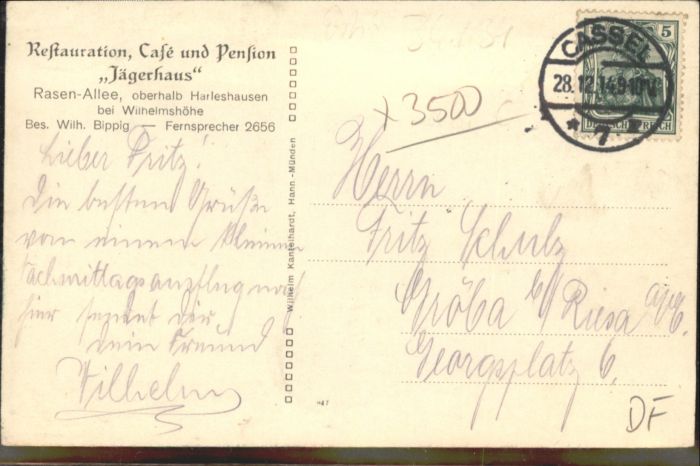 Restauration, Café und Pension
„Jägerhaus“
Rasen-Allee, oberhalb Harleshausen
bei Wilhelmshöhe
Bes. Wilh. Bippig — Fernsprecher 2656
Lieber Fritz!
Die besten Grüße
von einem kleinen
Nachmittagsausflug nach
hier sendet dir
dein Freund
Wilhelm
Wilhelm Kantelhardt, Hann.-Münden
x 3500
CASSEL
28.12.14.9-10V.
* 7 *
5
DEUTSCHES REICH
Herrn
Fritz Schulz
Gröba b/ Riesa a/E.
Georgsplatz 6.
DF